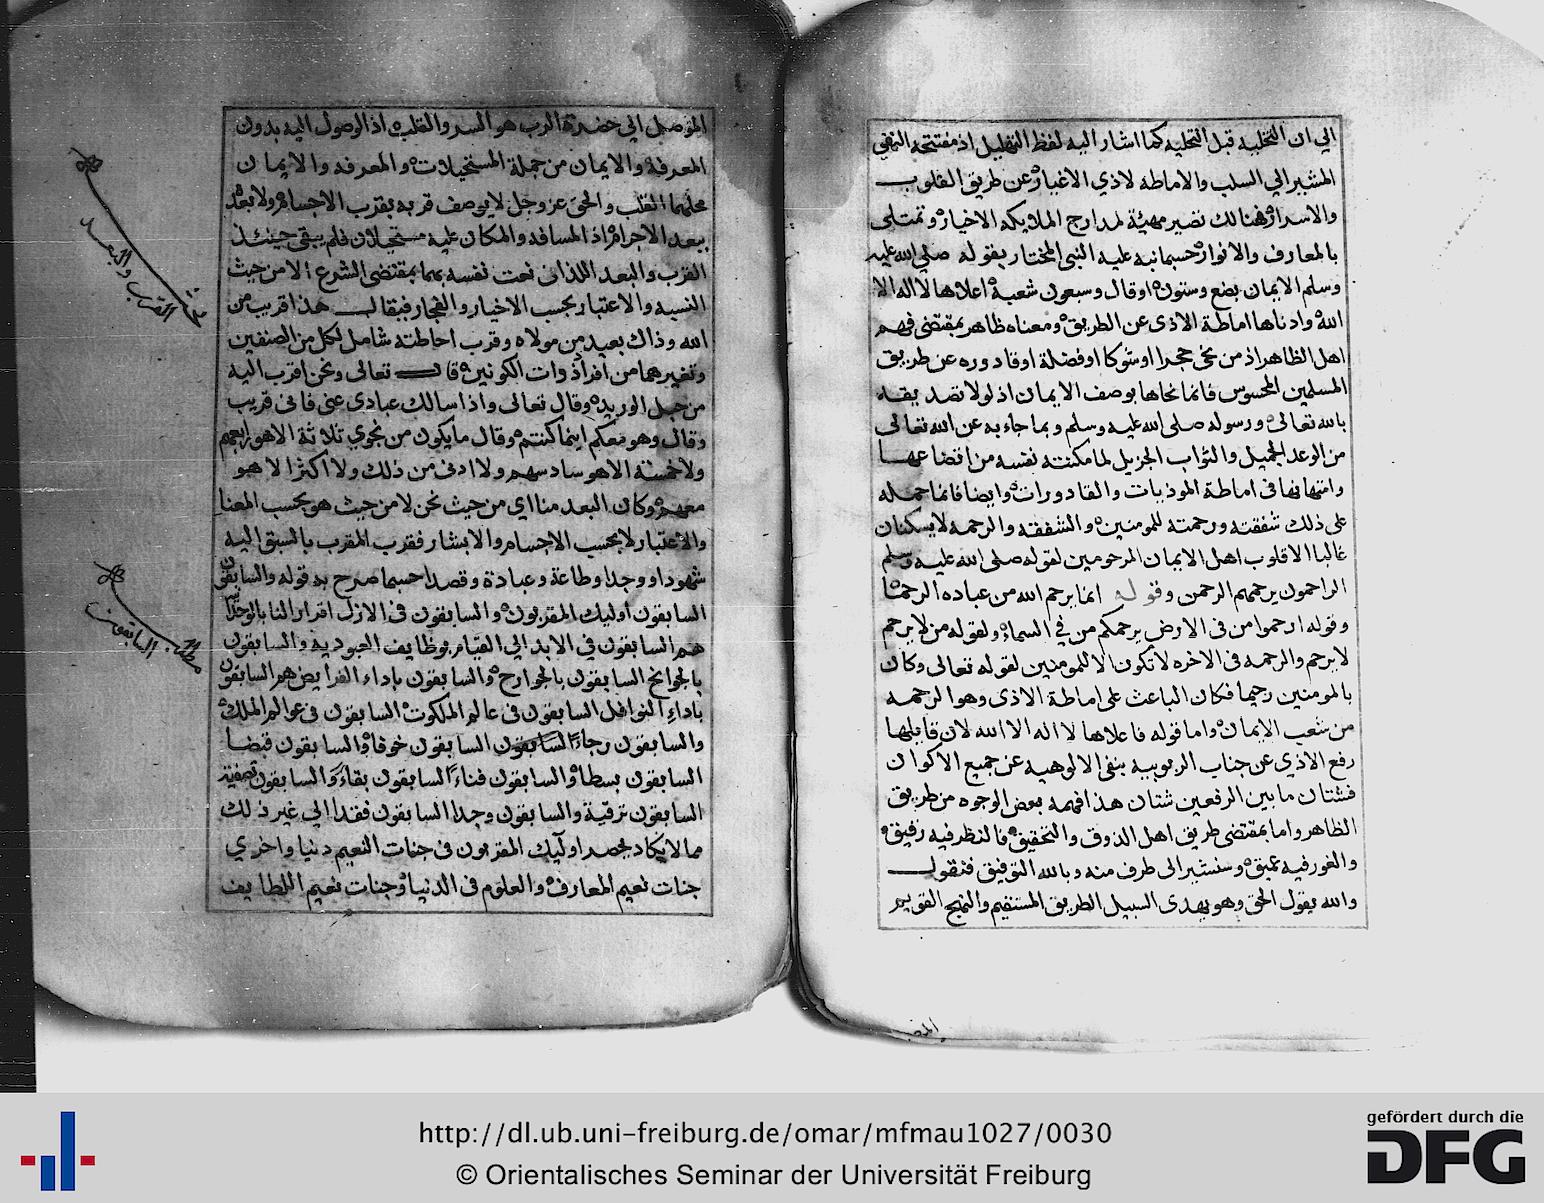 الي ان التخليه قبل التحليه كما اشار اليه لفظ التهليل اذ مفتتحه النفي
المشير الي السلب والاماطه لاذي الاغيار عن طريق القلوب
والاسرار فهنالك تصير مهيئة لمدارج الملايكه الاخيار وتمتلى
بالمعارف والانوار حسبما نبه عليه النبي المختار بقوله صلي الله عليه
وسلم الايمان بضع وستون او قال وسبعون شعبة اعلاها لا اله الا
الله وادناها اماطة الاذى عن الطريق ومعناه ظاهر بمقتضى فهم
اهل الظاهر اذ من نحى حجرا او شوكا او فضلة او قاد وره عن طريق
المسلمين المحسوس فانما نحاها بوصف الايمان اذ لولا تصديقه
بالله تعالى ورسوله صلى الله عليه وسلم وبما جاء به عن الله تعالى
من الوعد الجميل والثواب الجزيل لما مكنته نفسه من اتضاعها
وامتهانها في اماطة الموذيات والقادورات وايضا فانما حمله
على ذلك شفقته ورحمته للمومنين والشفقه والرحمه لا يسكنان
غالبا الا قلوب اهل الايمان المرحومين لقوله صلى الله عليه وسلم
الراحمون يرحمهم الرحمن وقوله انما يرحم الله من عباده الرحما
وقوله ارحموا من في الارض يرحمكم من في السماء ولقوله من لا يرحم
لا يرحم والرحمه في الاخره لا تكون الا للمومنين لقوله تعالى وكان
بالمومنين رحيما فكان الباعث على اماطة الاذى وهو الرحمه
من شعب الايمان واما قوله فاعلاها لا اله الا الله لان قايلها
رفع الاذي عن جناب الربوبيه بنفى الالوهيه عن جميع الاكوان
فشتان ما بين الرفعين شتان هذا فهمه بعض الوجوه من طريق
الظاهر واما بمقتضى طريق اهل الذوق والتحقيق فالنظر فيه رقيق
والغور فيه عميق وسنشير الى طرف منه وبالله التوفيق فنقول
والله يقول الحق وهو يهدى السبيل الطريق المستقيم والنهج القويم
الموصل الي حضرة الرب هو السر والقلب اذ الوصول اليه بدون
المعرفة والايمان من جملة المستحيلات والمعرفه والايمان
محلهما القلب والحق عز وجل لا يوصف قربه بقرب الاجسام ولا بعده
ببعد الاجرام اذ المسافه والمكان عليه مستحيلان فلم يبقى حينئذ
القرب والبعد اللذان نعت نفسه بهما بمقتضى الشرع الا من حيث
النسبه والاعتبار بحسب الاخيار والفجار فيقال هذا قريب من
الله وذاك بعيد من مولاه وقرب احاطته شامل لكل من الصنفين
وغيرهما من افراد ذوات الكونين قال تعالى ونحن اقرب اليه
من حبل الوريد وقال تعالى واذا سالك عبادي عنى فانى قريب
وقال وهو معكم اينما كنتم وقال ما يكون من نجوي ثلاثة الا هو رابعهم
ولا خمسة الا هو سادسهم ولا ادنى من ذلك ولا اكثر الا هو
معهم وكان البعد منا اي من حيث نحن لا من حيث هو بحسب المعنا
والاعتبار لا بحسب الاجسام والابشار فقرب المقرب بالسبق اليه
شهودا ووجدا وطاعة وعبادة وقصدا حسبما صرح به قوله والسابقون
السابقون اوليك المقربون والسابقون في الازل اقرارا لنا بالوحدانية
هم السابقون في الابد الي القيام بوظايف العبوديه والسابقون
بالجوانح السابقون بالجوارح والسابقون باداء الفرايض هم السابقون
باداء النوافل السابقون في عالم الملكوت السابقون في عوالم الملك
والسابقون رجاءً السابقون السابقون خوفا والسابقون قبضا
السابقون بسطا والسابقون فناءً السابقون بقاءً والسابقون تصفية
السابقون ترقية والسابقون وجدا السابقون فقدا الي غير ذلك
مما لا يكاد يحصر اوليك المقربون في جنات النعيم دنيا واخري
جنات نعيم المعارف والعلوم في الدنيا وجنات نعيم اللطايف
القرب والبعد
مطلب السابقون
http://dl.ub.uni-freiburg.de/omar/mfmau1027/0030
© Orientalisches Seminar der Universität Freiburg
gefördert durch die
DFG